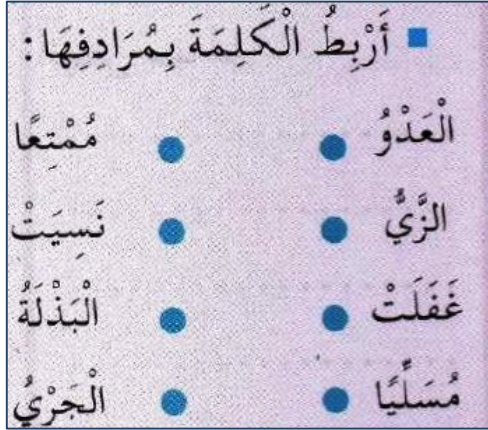 ■ أَرْبِطُ الْكَلِمَةَ بِمُرَادِفِهَا :
الْعَدْوُ ● ● مُمْتِعًا
الزَّيُّ ● ● نَسِيَتْ
غَفَلَتْ ● ● الْبَذْلَةُ
مُسَلِّيًا ● ● الْجَرْيُ